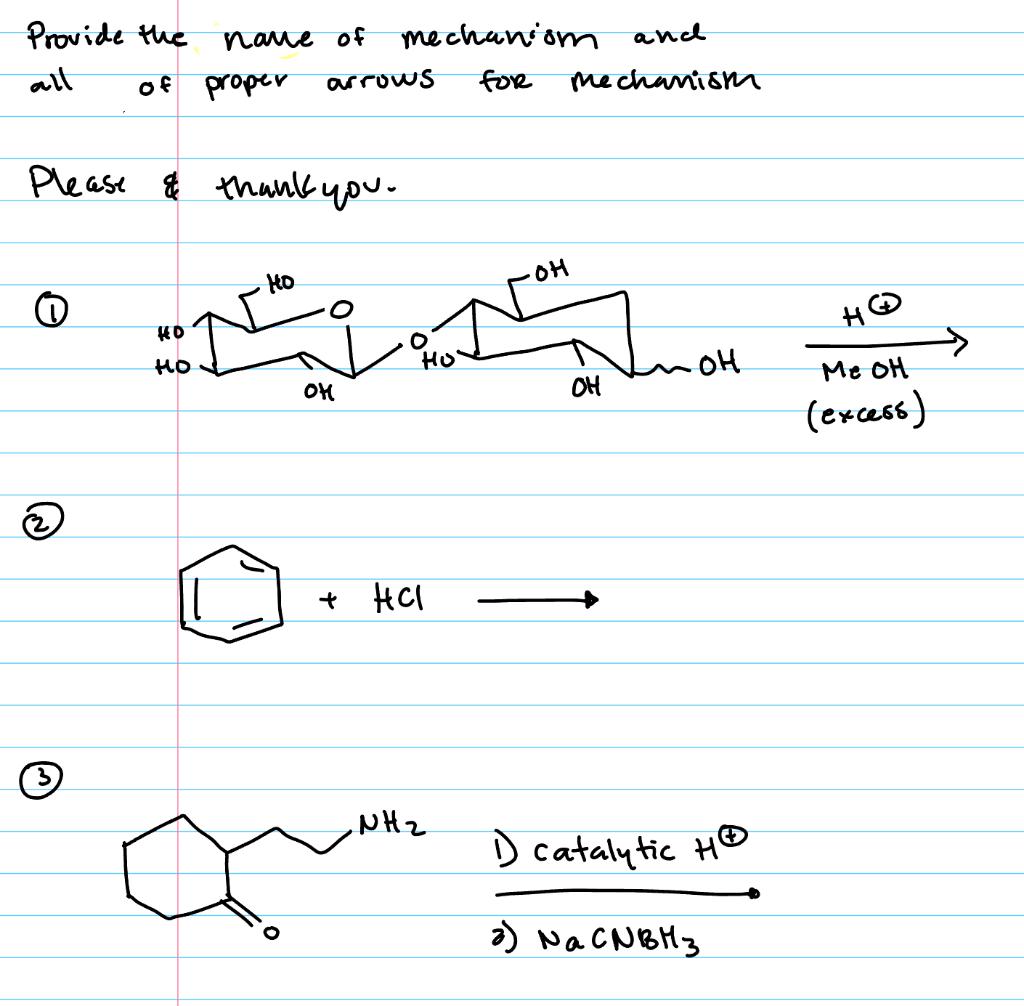 Provide the name of mechanism and
all of proper arrows for mechanism
Please & thank you.
①
HO
O
HO
HO
OH
O
OH
HO
OH
OH
H⊕
MeOH
(excess)
②
+ HCl
③
NH2
O
1) catalytic H⊕
2) NaCNBH3